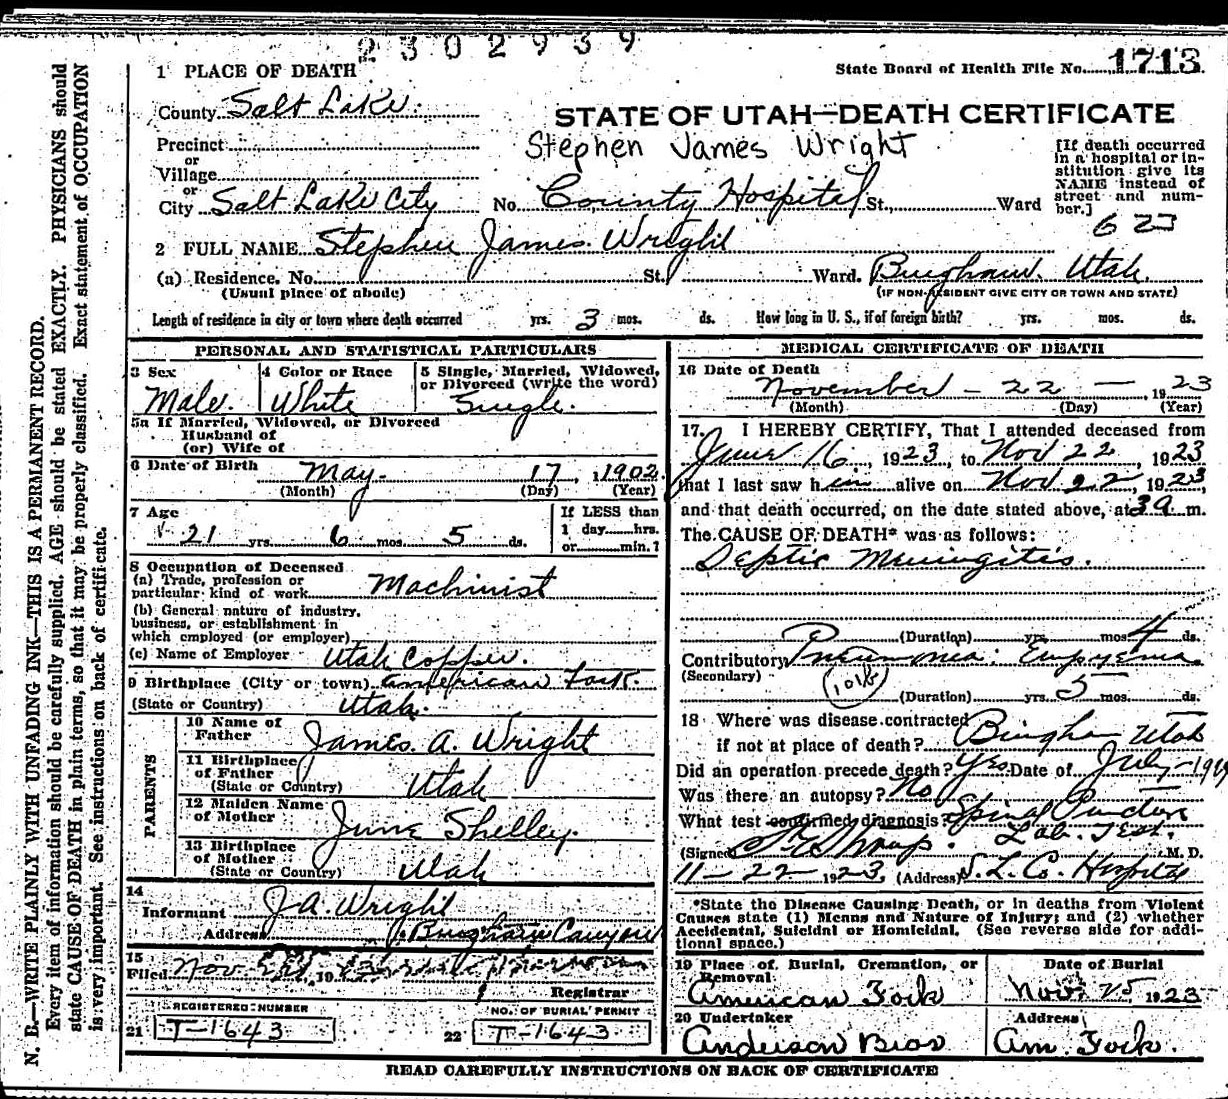 2302939
1 PLACE OF DEATH
State Board of Health File No. 1713
County Salt Lake.
STATE OF UTAH—DEATH CERTIFICATE
Precinct
Stephen James Wright
or
Village
or
City Salt Lake City No. County Hospital St., Ward
[If death occurred in a hospital or institution give its NAME instead of street and number.]
623
2 FULL NAME Stephen James Wright
(a) Residence. No. St. Ward. Bingham. Utah.
(Usual place of abode) (IF NON-RESIDENT GIVE CITY OR TOWN AND STATE)
Length of residence in city or town where death occurred yrs. 3 mos. ds. How long in U. S., if of foreign birth? yrs. mos. ds.
PERSONAL AND STATISTICAL PARTICULARS
3 Sex
Male.
4 Color or Race
White
5 Single, Married, Widowed, or Divorced (write the word)
Single.
5a If Married, Widowed, or Divorced
Husband of
(or) Wife of
6 Date of Birth May. 17, 1902
(Month) (Day) (Year)
7 Age
21 yrs. 6 mos. 5 ds.
If LESS than
1 day......hrs.
or......min.?
8 Occupation of Deceased
(a) Trade, profession or
particular kind of work Machinist
(b) General nature of industry,
business, or establishment in
which employed (or employer)
(c) Name of Employer Utah Copper.
9 Birthplace (City or town) American Fork.
(State or Country) Utah.
PARENTS
10 Name of
Father James. A. Wright
11 Birthplace
of Father
(State or Country) Utah
12 Maiden Name
of Mother June Shelley.
13 Birthplace
of Mother
(State or Country) Utah
14
Informant J A. Wright
Address Bingham Canyon
15
Filed Nov. 19
Registrar
REGISTERED NUMBER
21 T-1643
NO. OF BURIAL PERMIT
22 T-1643
MEDICAL CERTIFICATE OF DEATH
16 Date of Death
November - 22 - 1923
(Month) (Day) (Year)
17. I HEREBY CERTIFY, That I attended deceased from
June 16, 1923, to Nov 22, 1923
that I last saw him alive on Nov 22, 1923,
and that death occurred, on the date stated above, at 3 a. m.
The CAUSE OF DEATH* was as follows:
Septic Meningitis.
(Duration) yrs. mos. 4 ds.
Contributory Pneumonia: Empyema
(Secondary) 101b
(Duration) yrs. 5 mos. ds.
18 Where was disease contracted
if not at place of death? Bingham Utah
Did an operation precede death? Yes. Date of July-19
Was there an autopsy? No
What test confirmed diagnosis? Spinal Puncture
Lab. Test.
(Signed) M. D.
11-22-1923, (Address) S. L. Co. Hospital
*State the Disease Causing Death, or in deaths from Violent
Causes state (1) Means and Nature of Injury; and (2) whether
Accidental, Suicidal or Homicidal. (See reverse side for addi-
tional space.)
19 Place of Burial, Cremation, or
Removal
American Fork
Date of Burial
Nov. 25 1923
20 Undertaker
Anderson Bros
Address
Am. Fork.
READ CAREFULLY INSTRUCTIONS ON BACK OF CERTIFICATE
N. B.—WRITE PLAINLY WITH UNFADING INK—THIS IS A PERMANENT RECORD.
Every item of information should be carefully supplied. AGE should be stated EXACTLY. PHYSICIANS should
state CAUSE OF DEATH in plain terms, so that it may be properly classified. Exact statement of OCCUPATION
is very important. See instructions on back of certificate.